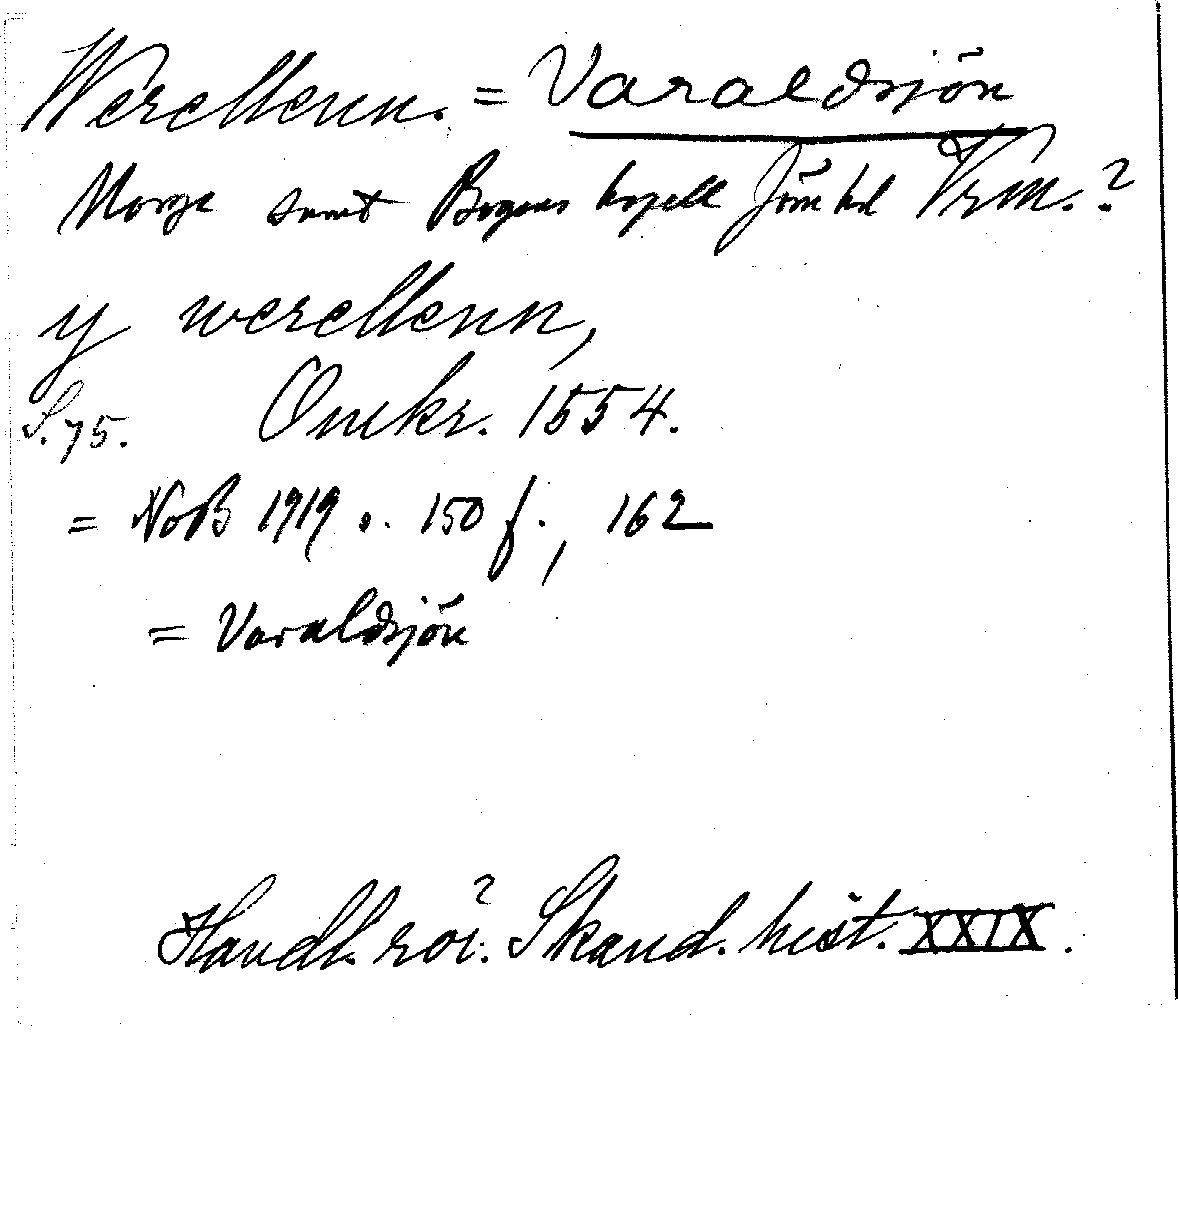 Werellenn. = Varaldsjön
Norge samt Bogens kapell Jösse hd Vrm.?
y werellenn,
S. 75. Omkr. 1554.
= NoB 1919 s. 150 f., 162
= Varaldsjön
Handl. rör. Skand. hist. XXIX.